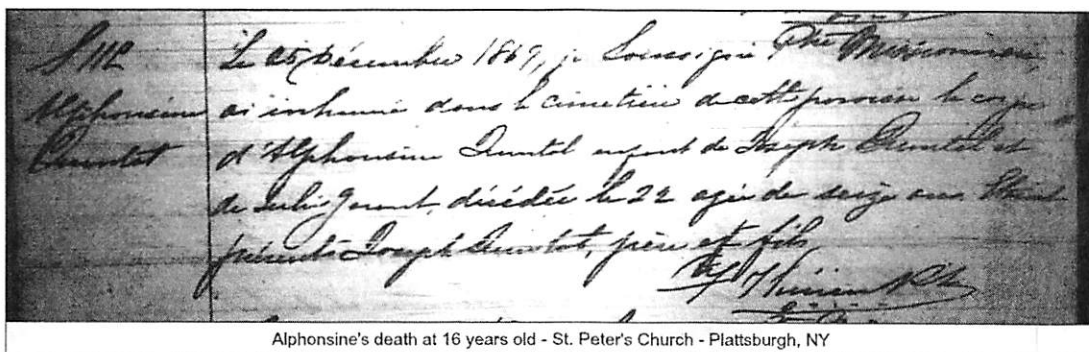 S 112
Alphonsine
Quintal
Le 25 Décembre 1869, je Soussigné Ptre Missionnaire,
ai inhumé dans le cimetière de cette paroisse le corps
d'Alphonsine Quintal enfant de Joseph Quintal et
de Julie décédée le 22 agée de seize ans. Etaient
présents Joseph Quintal, père et fils
Alphonsine's death at 16 years old - St. Peter's Church - Plattsburgh, NY